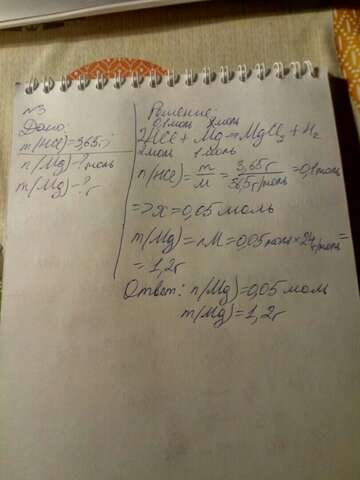 №3
Дано:
m(HCl)=3,65г
n(Mg)-? моль
m(Mg)-? г
Решение:
0,1моль xмоль
2HCl + Mg = MgCl₂ + H₂
2моль 1моль
n(HCl) = m/M = 3,65г/36,5г/моль = 0,1моль
=> x = 0,05 моль
m(Mg) = nM = 0,05 моль × 24 г/моль =
= 1,2г
Ответ: n(Mg)=0,05 моль
m(Mg)=1,2г